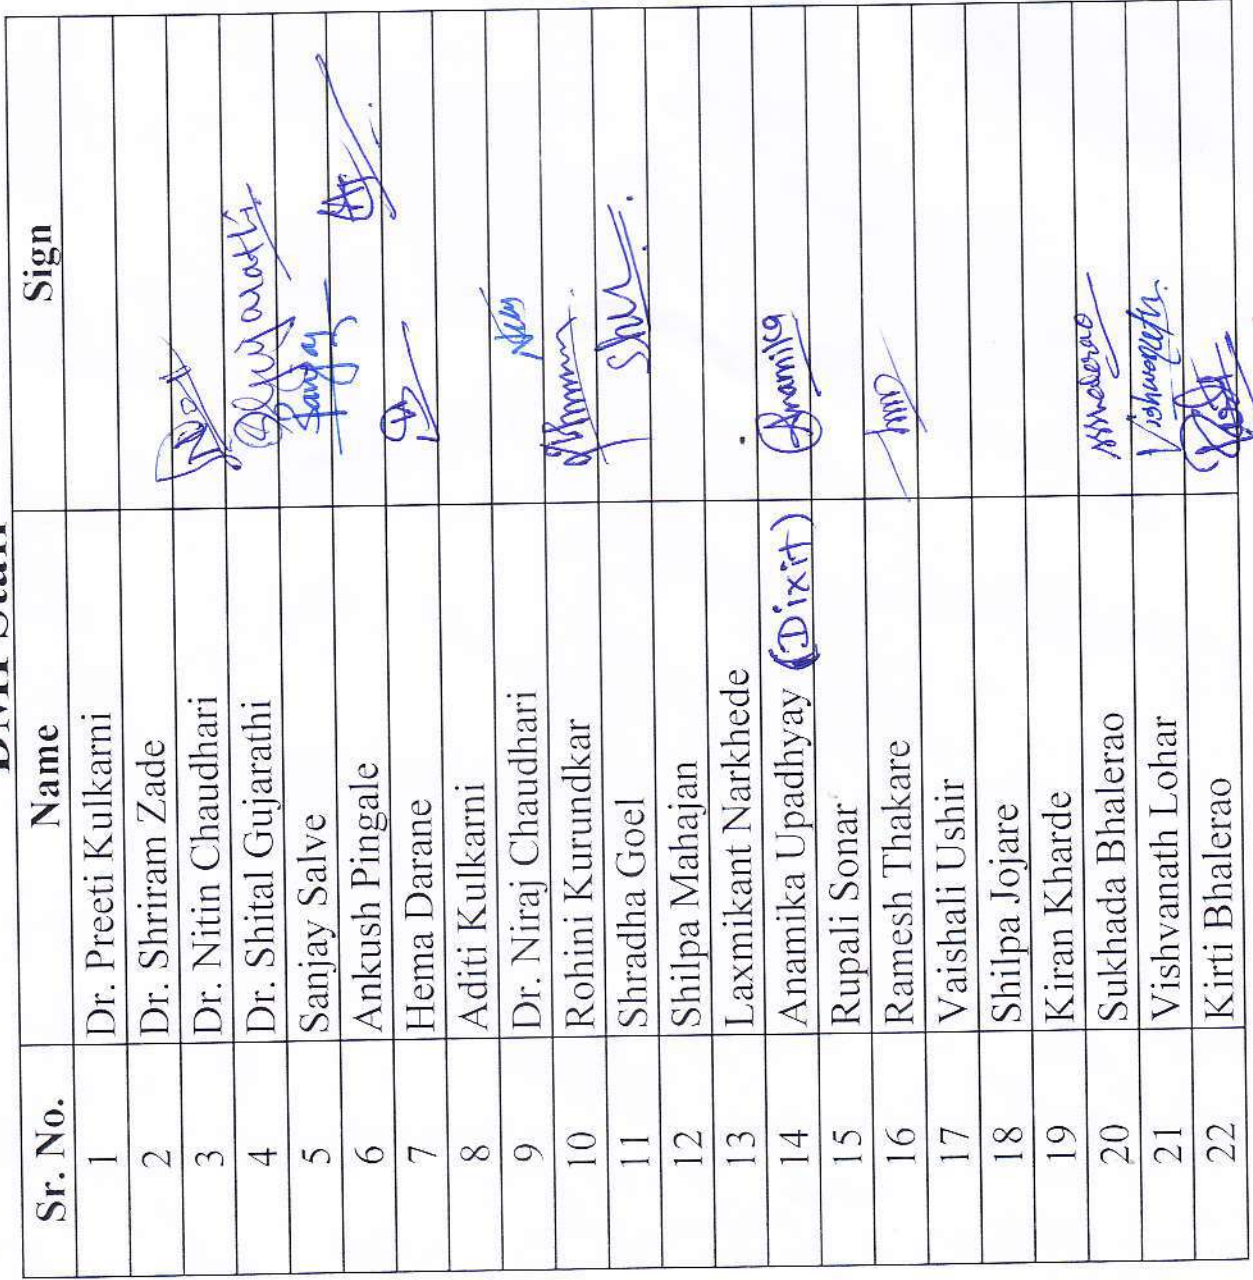 Sr. No. Name Sign
1 Dr. Preeti Kulkarni
2 Dr. Shriram Zade
3 Dr. Nitin Chaudhari
4 Dr. Shital Gujarathi
5 Sanjay Salve Sanjay
6 Ankush Pingale
7 Hema Darane
8 Aditi Kulkarni
9 Dr. Niraj Chaudhari
10 Rohini Kurundkar
11 Shradha Goel
12 Shilpa Mahajan
13 Laxmikant Narkhede
14 Anamika Upadhyay (Dixit) Anamika
15 Rupali Sonar
16 Ramesh Thakare
17 Vaishali Ushir
18 Shilpa Jojare
19 Kiran Kharde
20 Sukhada Bhalerao
21 Vishvanath Lohar
22 Kirti Bhalerao